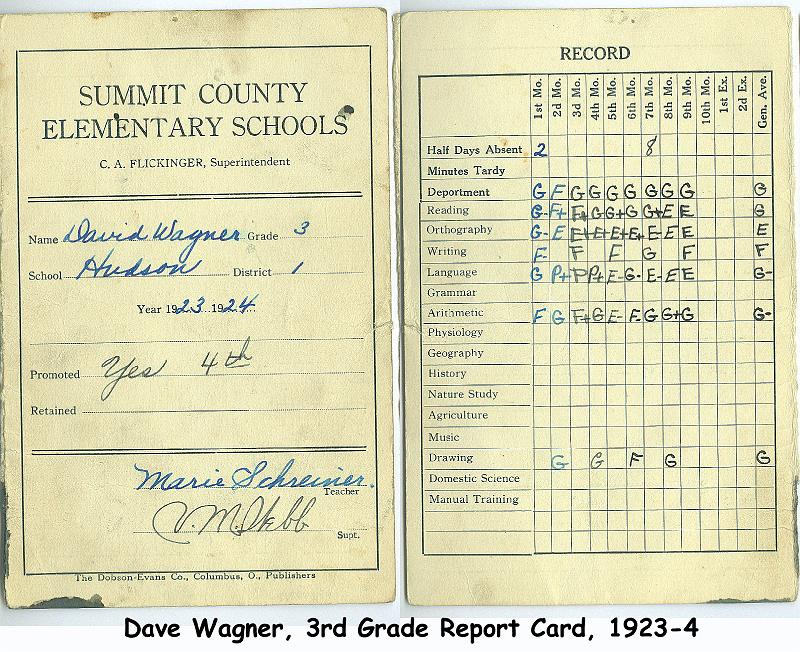 SUMMIT COUNTY
ELEMENTARY SCHOOLS
C. A. FLICKINGER, Superintendent
Name David Wagner Grade 3
School Hudson District 1
Year 1923 1924
Promoted Yes 4th
Retained
Marie Schreiner.
Teacher
Supt.
The Dobson-Evans Co., Columbus, O., Publishers
RECORD
1st Mo. 2d Mo. 3d Mo. 4th Mo. 5th Mo. 6th Mo. 7th Mo. 8th Mo. 9th Mo. 10th Mo. 1st Ex. 2d Ex. Gen. Ave.
Half Days Absent 2 8
Minutes Tardy
Department G F G G G G G G G G
Reading G- F+ E+ G G+ G G+ E E G
Orthography G- E E+ E+ E+ E+ E- E E E
Writing F F F G F F
Language G P+ P P+ E- G- E- E E G-
Grammar
Arithmetic F G F+ G E- E G G+ G G-
Physiology
Geography
History
Nature Study
Agriculture
Music
Drawing G G F G G
Domestic Science
Manual Training
Dave Wagner, 3rd Grade Report Card, 1923-4